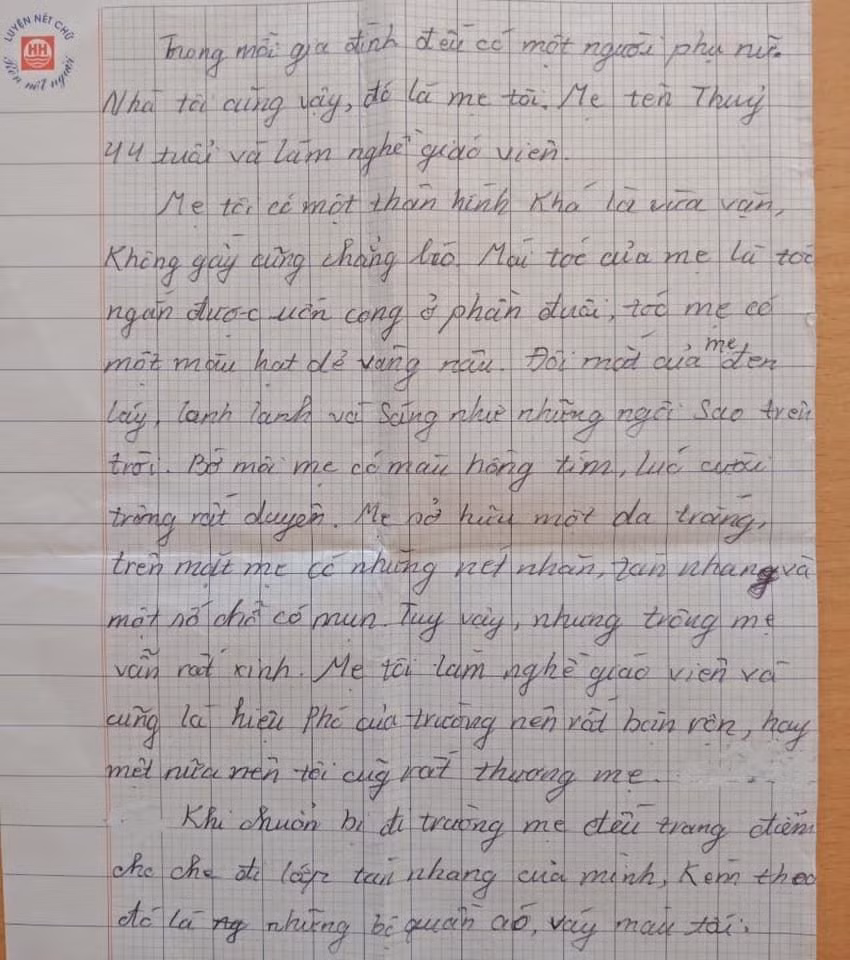 LUYỆN NÉT CHỮ
HH
Rèn nết người
Trong mỗi gia đình đều có một người phụ nữ.
Nhà tôi cũng vậy, đó là mẹ tôi. Mẹ tên Thuỷ
44 tuổi và làm nghề giáo viên.
Mẹ tôi có một thân hình khá là vừa vặn,
không gầy cũng chẳng béo. Mái tóc của mẹ là tóc
ngắn được uốn cong ở phần đuôi, tóc mẹ có
một màu hạt dẻ vàng nâu. Đôi mắt của mẹ đen
láy, lanh lanh và sáng như những ngôi sao trên
trời. Bờ môi mẹ có màu hồng tím, lúc cười
trông rất duyên. Mẹ sở hữu một da trắng,
trên mặt mẹ có những nết nhăn, tàn nhang và
một số chỗ có mụn. Tuy vậy, nhưng trông mẹ
vẫn rất xinh. Mẹ tôi làm nghề giáo viên và
cũng là hiệu phó của trường nên rất bận rộn, hay
mệt nữa nên tôi cũg rất thương mẹ.
Khi chuẩn bị đi trường mẹ đều trang điểm
cho che đi lớp tàn nhang của mình, kèm theo
đó là những bộ quần áo, váy màu tối.